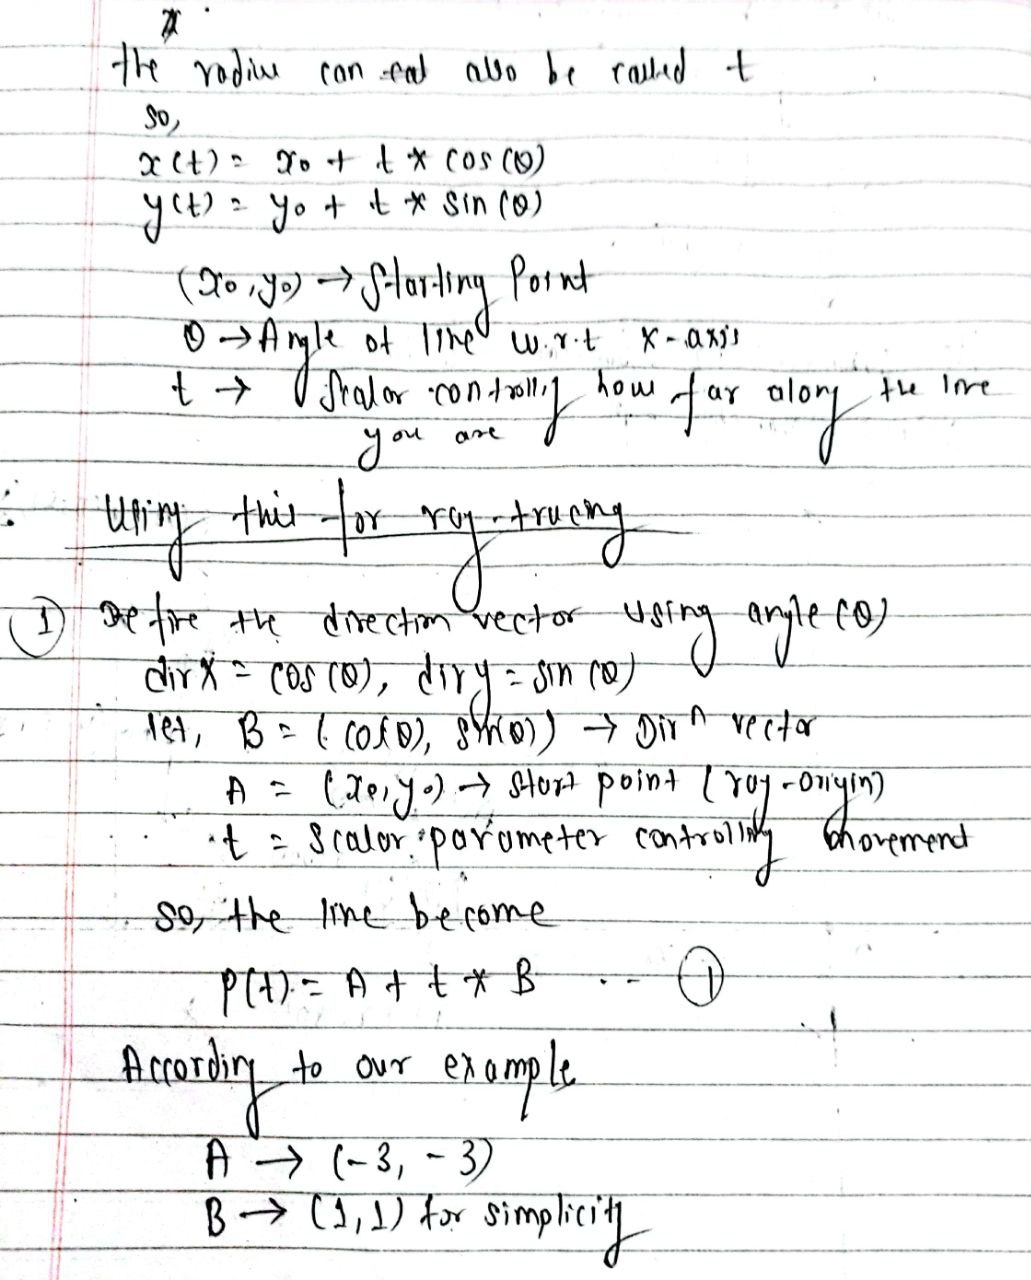 the radius can also be called t
so,
x(t) = x0 + t * cos(θ)
y(t) = y0 + t * sin(θ)
(x0, y0) → Starting Point
θ → Angle of line w.r.t x-axis
t → Scalar controlling how far along the line
you are
Using this for ray-tracing
① Define the direction vector using angle (θ)
dirX = cos(θ), diry = sin(θ)
let, B = (cos(θ), sin(θ)) → Dirⁿ vector
A = (x0, y0) → start point (ray-origin)
t = scalar parameter controlling movement
so, the line become
P(t) = A + t * B ... ①
According to our example
A → (-3, -3)
B → (1,1) for simplicity